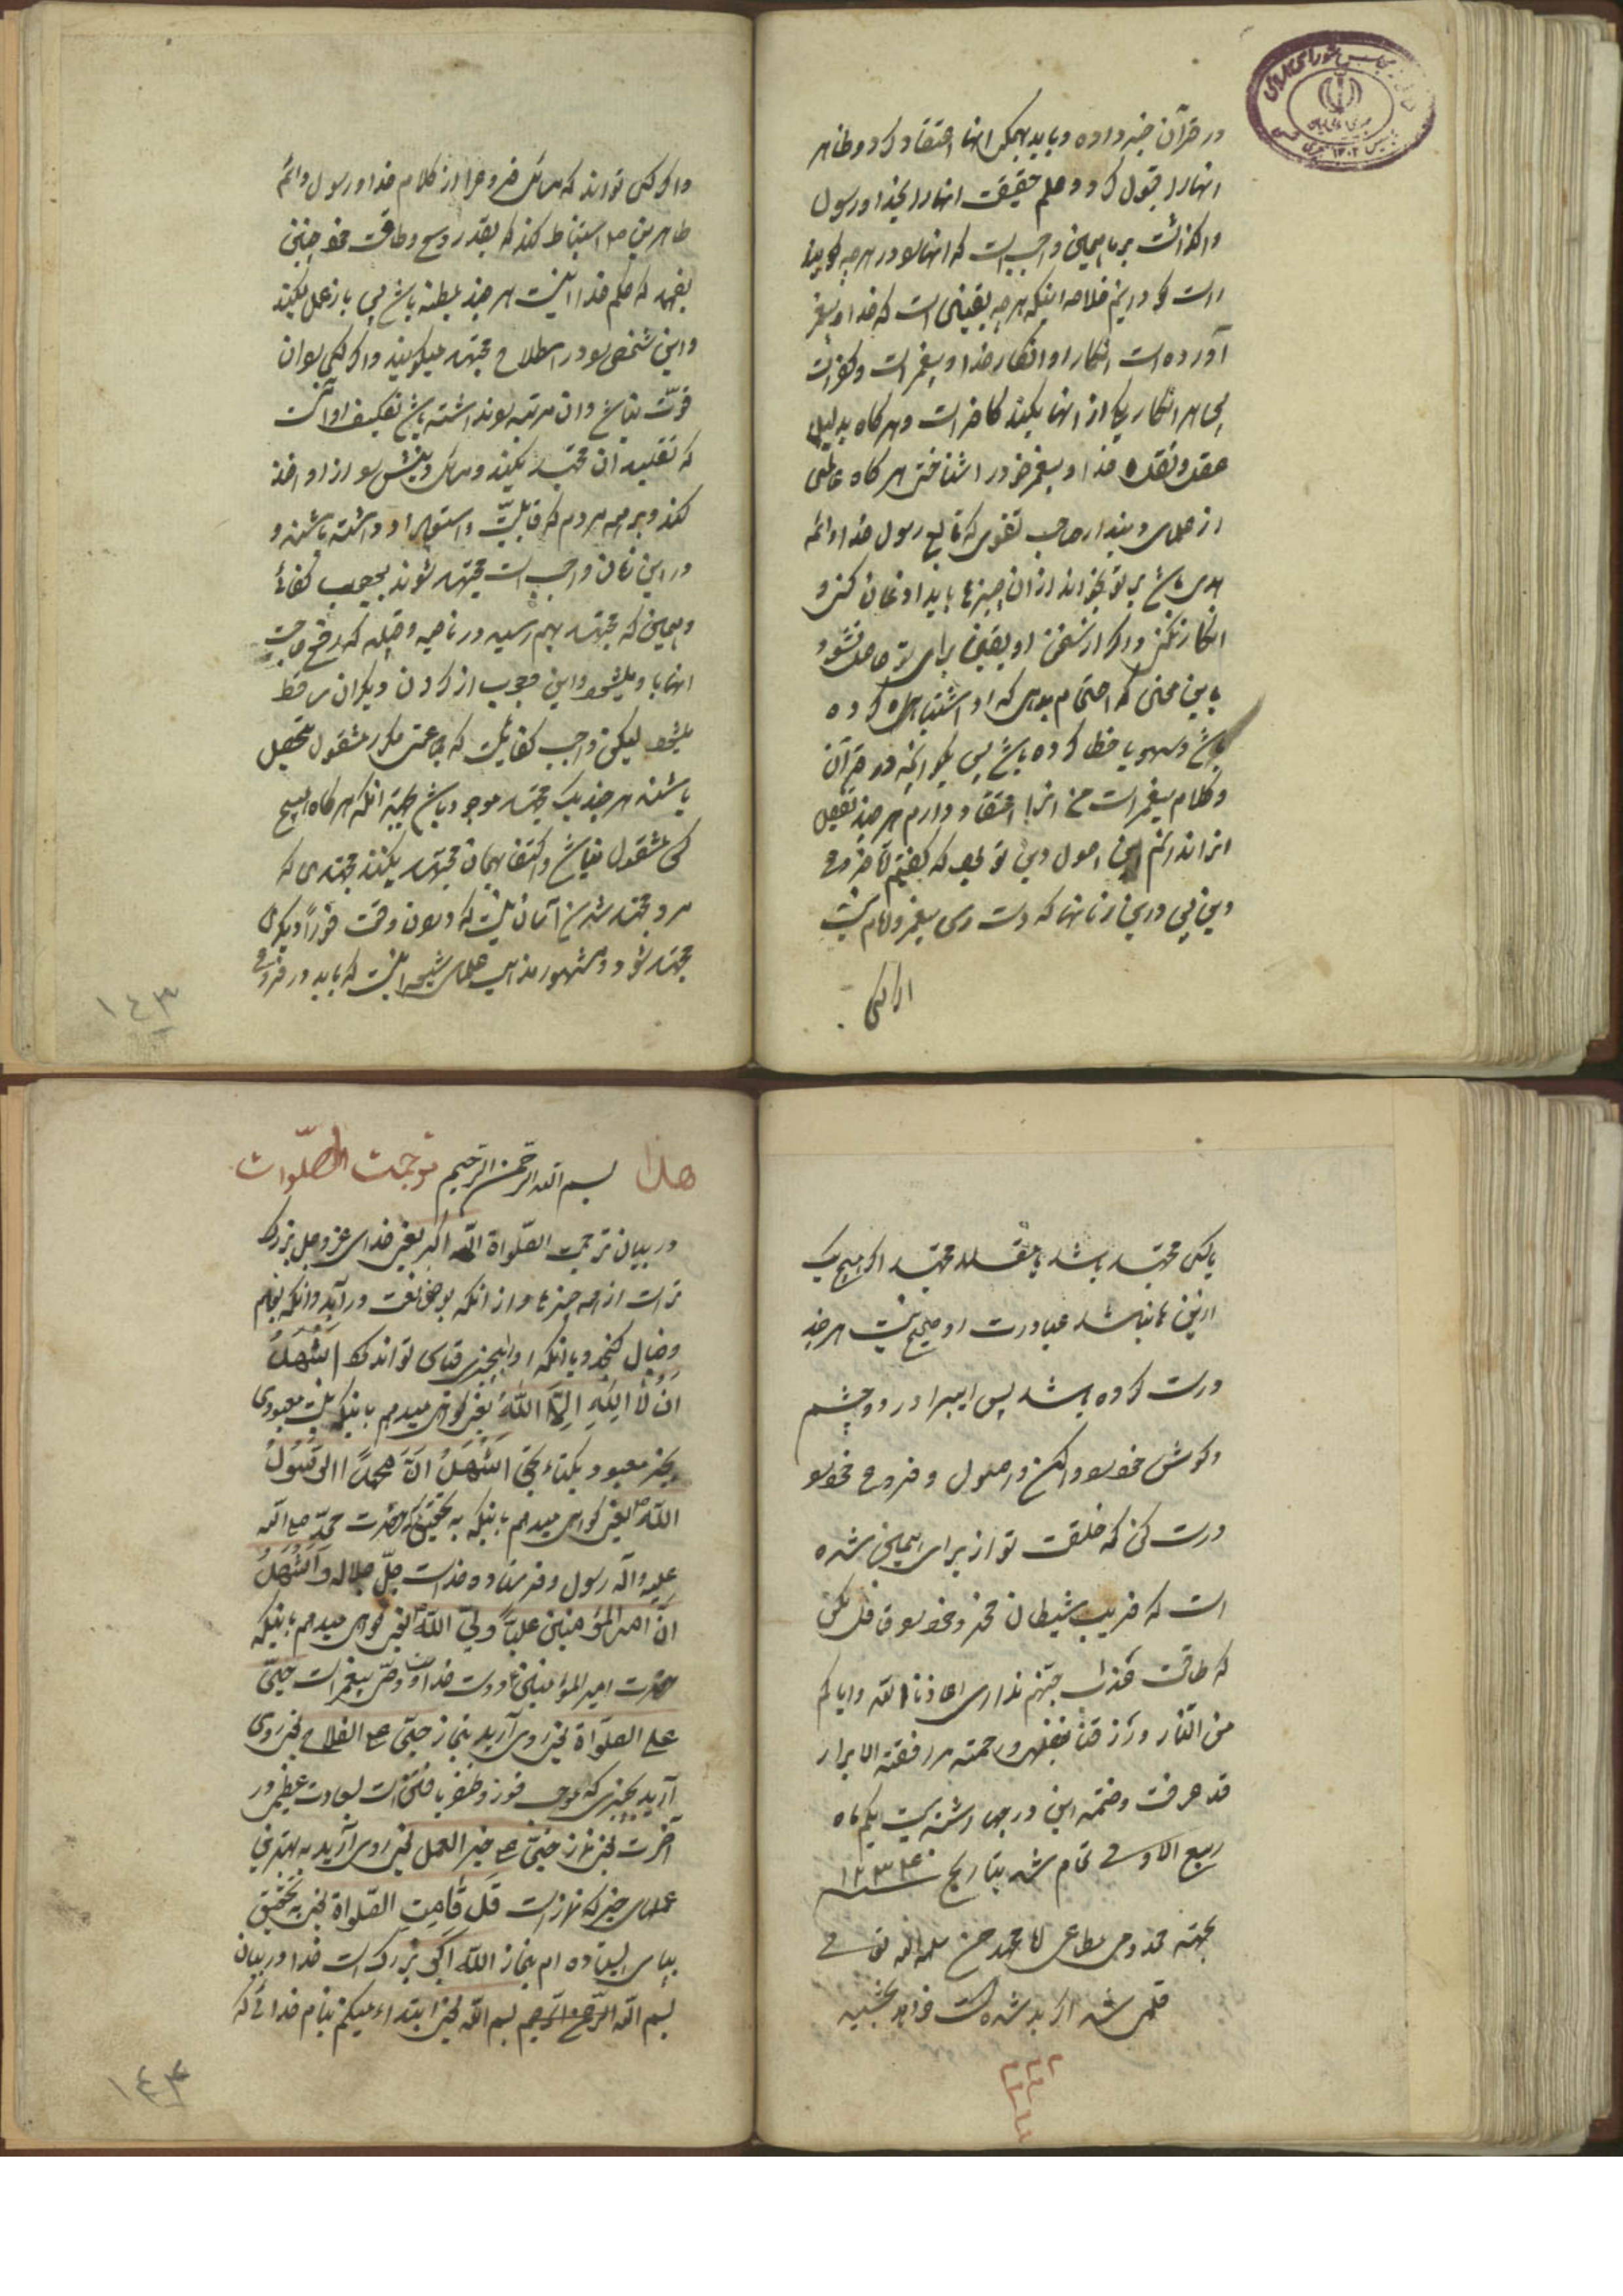 در قرآن خبر داده و باید بهمگی انها اعتقاد کرد و ظاهر
انهارا قبول کرد و علم حقیقت انهارا بخدا و رسول
واکذاشت بر ما همین واجبست که انهارا در هرچه کویند
راست کو دانیم خلاصه اینکه هرچه یقینی است که خدا و پیغمبر
آورده است انکار او انکار خدا و پیغمبر است و کفر است
پس هر انکار یکی از انها بکند کافر است و هرکاه بدلیل
عقل و نقل خدا و پیغمبر خود را شناختی هرکاه عالمی
از علمای دیندار صاحب تقوی که تابع رسول خدا و ائمه
هدی باشد بر تو بخواند از ان چیزها باید اذعان کنی و
انکار نکنی و اکر از سخن او یقین برای تو حاصل نشود
باین معنی که احتمام بدهی که او اشتباهی کرده
باشد و سهو یا خطا کرده باشد پس بکو انچه در قرآن
و کلام پیغمبر است من انرا اعتقاد دارم هرچند تفصیل
انرا ندانم این اصول دین تو بود که کفتیم اما فروع
دین پس در این زمانها که دست رس پیغمبر و امام نیست
اکر کسی
واکر کسی تواند که مسائل فروع را از کلام خدا و رسول و ائمه
طاهرین ع استنباط کند که بقدر وسع و طاقت خود چنین
بفهمد که حکم خدا اینست هرچند بمظنه باشد پس باز عمل بکند
و این شخص را در اصطلاح مجتهد میکویند و اکر کسی را ان
قوت نباشد و ان مرتبه را نداشته باشد تکلیف او انست
که تقلید ان مجتهد بکند و مسائل دینش را از او اخذ
کند و بر همه مردم که قابلیت و استعداد داشته باشند و
در این زمان واجبست مجتهد شوند بوجوب کفائی
و همین که مجتهد بهم رسید در ناحیه و قبیله که رفع حاجت
انها باو میشود این وجوب از کردن دیکران ساقط
میشود لیکن واجب کفائیست که جماعتی مکرر مشغول تحصیل
باشند هرچند یک مجتهد موجود باشد بجهة انکه هرکاه هیچ
کس مشغول نباشد و اکتفا بهمان مجتهد بکنند مجتهدی که
مرد مجتهد شدن آسان نیست که در همان وقت فوراً دیکری
مجتهد شود و مشهور مذهب علمای شیعه اینست که باید در فروع
۱٤۳
یا کسی مجتهد باشد یا مقلد مجتهد اکر هیچ یک
از این ها نباشد عبادت او صحیح نیست هرچند
درست کرده باشد پس ای برادر دو چشم
و کوش خود را وا کن و اصول و فروع خود را
درست کن که خلقت تو از برای همین شده
است که فریب شیطان نخور و خود را غافل نکن
که طاقت عذاب جهنم نداری اعاذنا الله و ایاکم
من النار و رزقنا بفضله و رحمته مرافقة الابرار
قد عرفت و ختمه این در چهارشنبه بیست یکم ماه
ربیع الاول تمام شد بتاریخ سنه ۱۲۳۴
بجهته مخدومی مطاعی اقا محمد حسن سلمه الله تعالی
قلمی شد اکر بد شده است خواهد بخشید
هذا بسم الله الرحمن الرحیم ترجمت الصلوات
در بیان ترجمت الصلواة الله اکبر یعنی خدای عز و جل بزرک
تر است از همه چیزها و از انکه بوصف و نعت درآید و انکه بفهم
و خیال کنجد و یا انکه اورا بچیزی قیاس تواند کرد اشهد
ان لا اله الا الله یعنی کواهی میدهم باینکه نیست معبودی
بجز معبود یکتاء بحق اشهد ان محمدا الرسول
الله یعنی کواهی میدهم باینکه به تحقیق که حضرت محمد صلی الله
علیه و آله رسول و فرستاده خداست جل جلاله و اشهد
ان امیر المؤمنین علیاً ولی الله یعنی کواهی میدهم باینکه
حضرت امیر المؤمنین ع دوست خداست و وصی پیغمبر است حی
علی الصلواة یعنی روی آرید بنماز حی علی الفلاح یعنی روی
آرید بچیزی که موجب فوز و ظفر یافتن است بسعادت عظیم در
آخرت یعنی نماز حی علی خیر العمل یعنی روی آرید به بهترین
عملهای خیر که نماز است قد قامت الصلواة یعنی به تحقیق
بپای ایستاده ام بنماز الله اکبر بزرک است خدا در بیان
بسم الله الرحمن الرحیم بسم الله یعنی ابتداء میکنم بنام خدائی که
۱٤۴